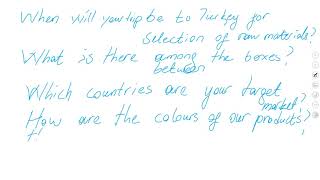 When will your trip be to Turkey for
selection of raw materials?
What is there among the boxes?
between
Which countries are your target
market?
How are the colours of our products?